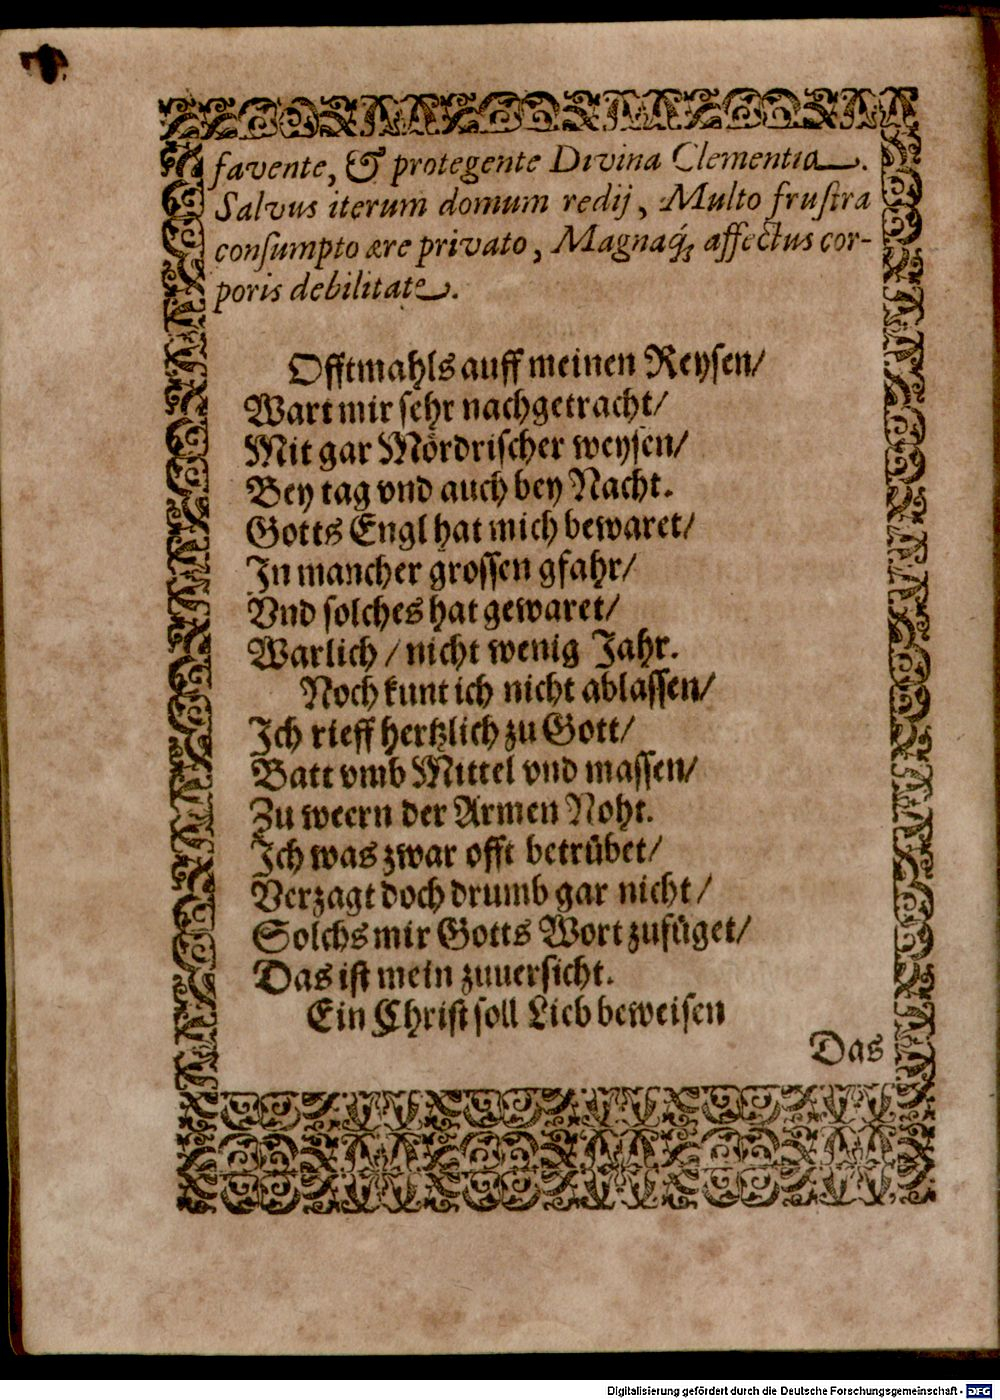 favente, & protegente Divina Clementia.
Salvus iterum domum redij, Multo frustra
consumpto ære privato, Magnaq́; affectus cor-
poris debilitate.
Offtmahls auff meinen Reysen/
Wart mir sehr nachgetracht/
Mit gar Mördrischer weysen/
Bey tag vnd auch bey Nacht.
Gotts Engl hat mich bewaret/
In mancher grossen gfahr/
Vnd solches hat gewaret/
Warlich / nicht wenig Jahr.
Noch kunt ich nicht ablassen/
Ich rieff hertzlich zu Gott/
Batt vmb Mittel vnd massen/
Zu weern der Armen Noht.
Ich was zwar offt betrübet/
Verzagt doch drumb gar nicht/
Solchs mir Gotts Wort zufüget/
Das ist mein zuuersicht.
Ein Christ soll Lieb beweisen
Das
Digitalisierung gefördert durch die Deutsche Forschungsgemeinschaft - DFG